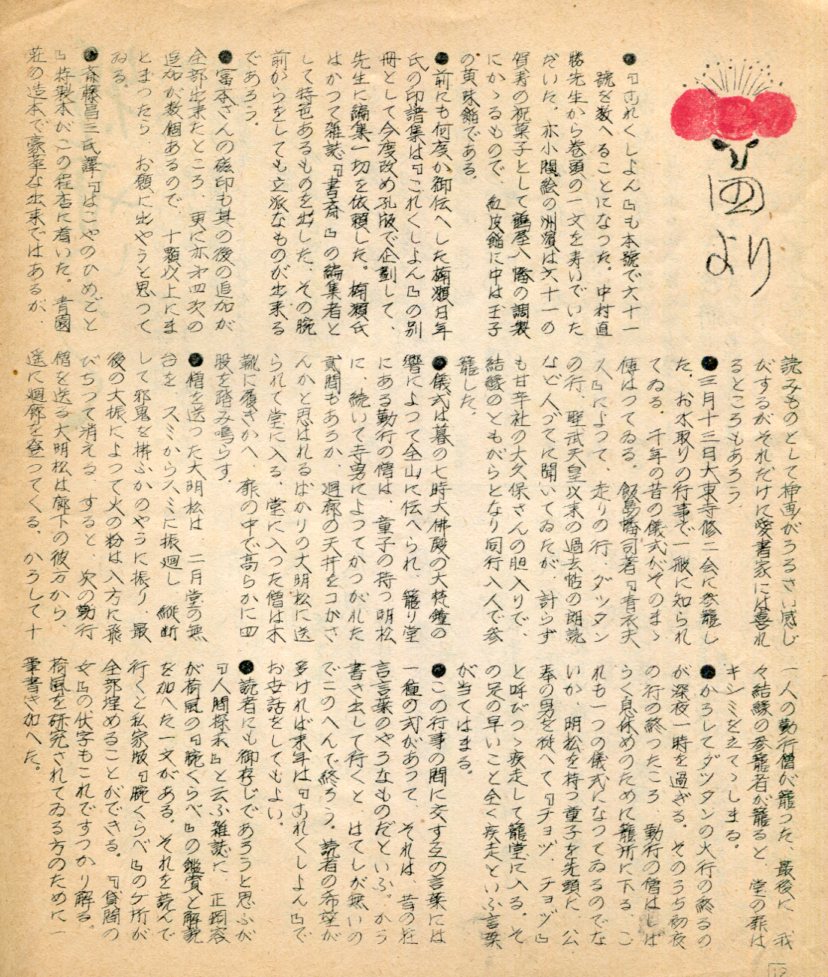 四
より
●『これくしよん』も本號で六十一
號を数へることになつた。中村直
勝先生から巻頭の一文を寿いでいた
だいた。亦小閑絵の洲濱は六十一の
賀寿の祝菓子として鶴屋八幡の調製
にかゝるもので、紅皮餡に中は玉子
の黄味餡である。
●前にも何度か御伝へした梅瀬日年
氏の印譜集は『これくしよん』の別
冊として今度改め孔版で企劃して、
先生に編集一切を依頼した。梅瀬氏
はかつて雑誌『書斎』の編集者と
して特色あるものを出した、その腕
前からをしても立派なものが出来る
であらう。
●富本さんの磁印も其の後の追加が
全部出来たところ、更に亦才四次の
追加が数個あるので、十顆以上にま
とまつたら お願に出やうと思つて
ゐる。
●斎藤昌三氏譯『はこやのひめごと
』特製本がこの程店に着いた。青園
荘の造本で豪華な出来ではあるが、
読みものとして挿画がうるさい感じ
がするがそれだけに愛書家には喜れ
るところもあらう。
●三月十三日大東寺修二会に参籠し
た。お水取りの行事で一般に知られ
てゐる。千年の昔の儀式がそのまゝ
傳はつてゐる。飯島幡司著『青衣女
人』によつて、走りの行、ダツタン
の行、聖武天皇以来の過去帖の朗読
など人づてに聞いてゐたが、計らず
も甘辛社の大久保さんの胆入りで、
結縁のともがらとなり同行八人で参
籠した。
●儀式は暮の七時大佛殿の大梵鐘の
響によつて全山に伝へられ、籠り堂
にある勤行の僧は、童子の持つ明松
に、続いて寺男によつてかつがれた
貳間もあるか、廻廊の天井をコがさ
んかと思はれるばかりの大明松に送
られて堂に入る、堂に入つた僧は木
靴に履きかへ 扉の中で高らかに四
股を踏み鳴らす。
●僧を送つた大明松は、二月堂の舞
台を スミからスミに振廻し 縦断
して邪鬼を拂ふかのやうに振り、最
後の大振によつて火の粉は八方に飛
びちつて消える。すると、次の勤行
僧を送る大明松は廊下の彼方から、
遥に廻廊を登つてくる。かうして十
一人の勤行僧が籠つた、最後に 我
々結縁の参籠者が籠ると 堂の扉は
キシミを立てゝしまる。
●かうしてダツタンの火行の終るの
が深夜一時を過ぎる。そのうち初夜
の行の終つたころ 勤行の僧はしば
らく息休めのために籠所に下る。こ
れも一つの儀式になつてゐるのでな
いか、明松を持つ童子を先頭に 公
奉の男を從へて『チョヅ、チョヅ』
と呼びつゝ疾走して籠堂に入る。そ
の足の早いこと全く疾走といふ言葉
が当てはまる。
●この行事の間に交す互の言葉には
一種の式があつて、それは、昔の狂
言言葉のやうなものだといふ。かう
書き出して行くと はてしが無いの
でこのへんで終らう。読者の希望が
多ければ来年は『これくしよん』で
お世話をしてもよい。
●読者にも御存じであらうと思ふが
『人間探求』と云ふ雑誌に 正岡容
が荷風の『腕くらべ』の鑑賞と解説
を加へた一文がある。それを読んで
行くと私家版『腕くらべ』のケ所が
全部埋めることができる。『貸間の
女』の伏字もこれですつかり解る。
荷風を研究されてゐる方のために一
筆書き加へた。